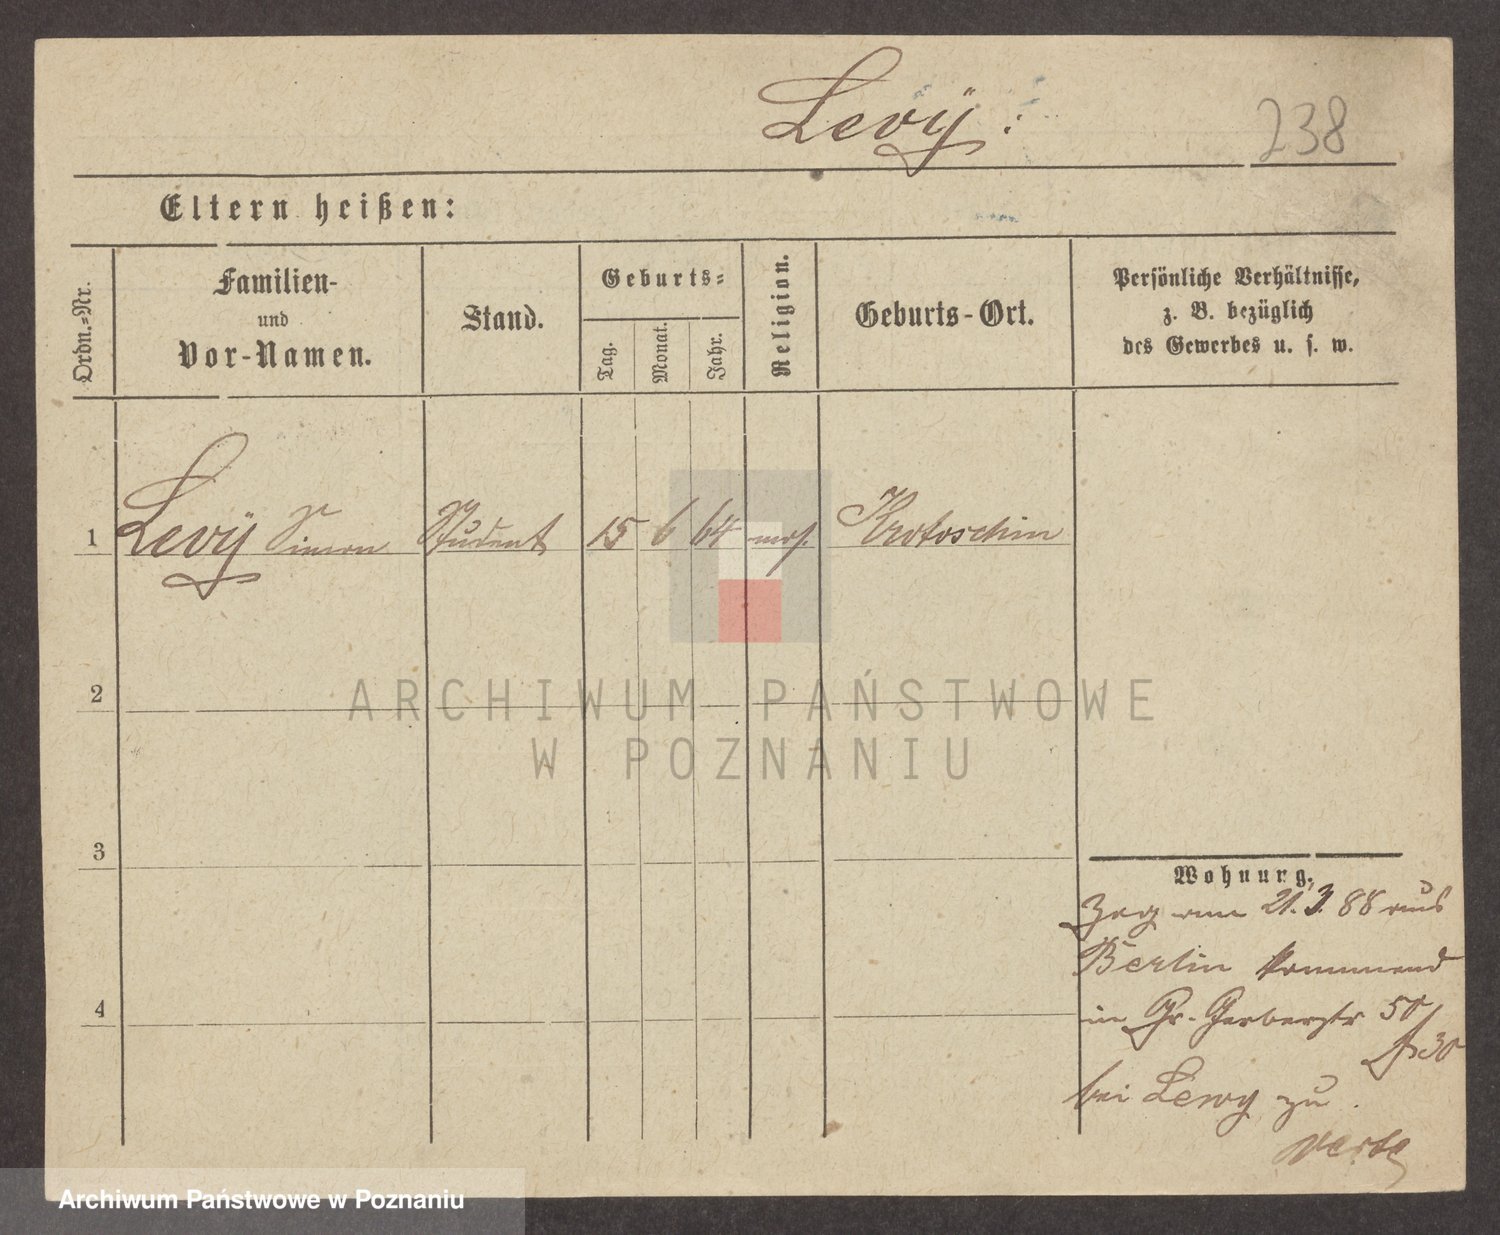 Levÿ:
238
Eltern heißen:
Ordn.-Nr.
Familien-
und
Vor-Namen.
Stand.
Geburts-
Tag.
Monat.
Jahr.
Religion.
Geburts-Ort.
Persönliche Verhältnisse,
z. B. bezüglich
des Gewerbes u. s. w.
1 Levÿ Simon Student 15 6 64 mos. Krotoschin
2
ARCHIWUM PAŃSTWOWE
W POZNANIU
3
4
Wohnung.
Zog am 21.3.88 aus
Berlin kommend
in Gr. Gerberstr 50
30
bei Lewy zu
Archiwum Państwowe w Poznaniu